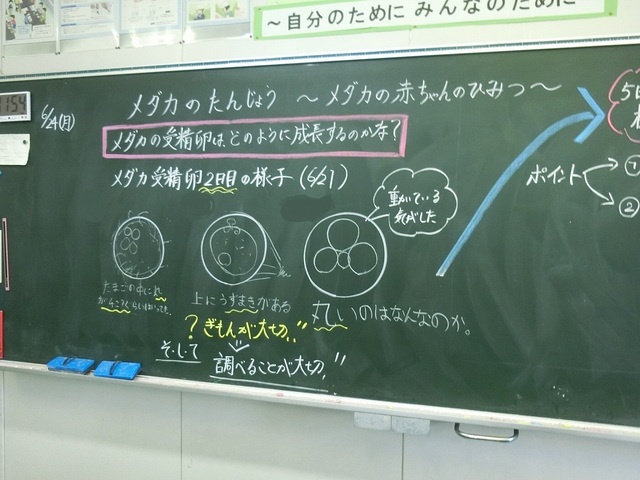 ～自分のために みんなのために
11:54
6/24(月)
メダカのたんじょう ～メダカの赤ちゃんのひみつ～
メダカの受精卵はどのように成長するのかな？
メダカ受精卵2日目の様子(6/21)
動いている
気がした
たまごの中に
上にうずまきがある
丸いのはなんなのか。
？ぎもんが大切。
そして
調べることが大切。
5日
ポイント
①
②